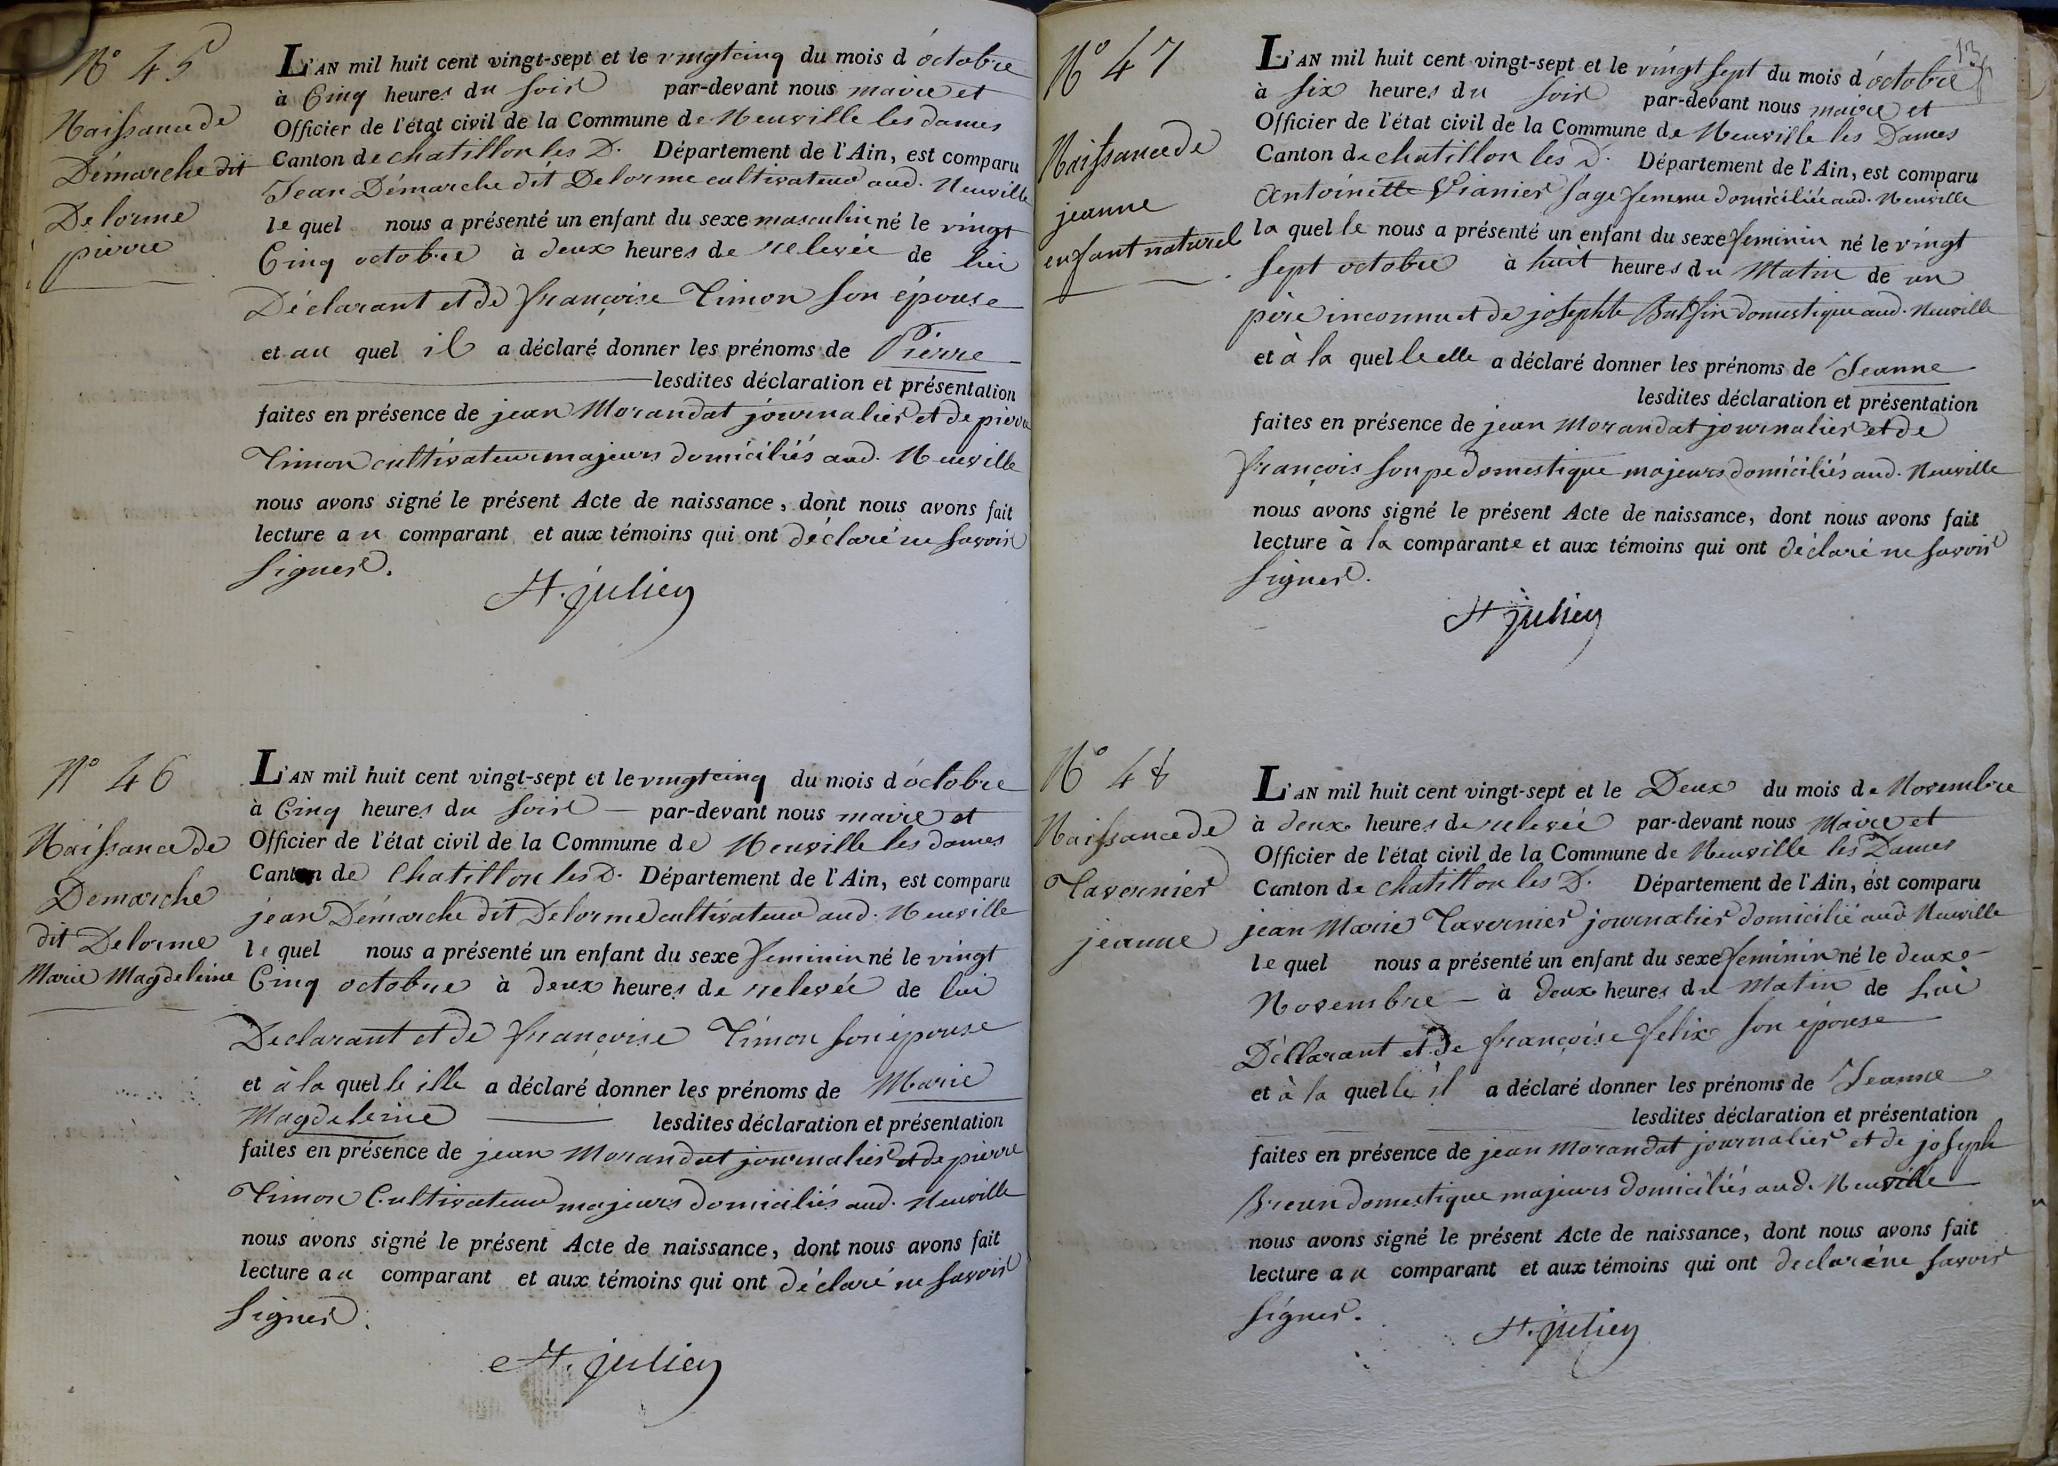 N° 45
Naissance de
Démarche dit
Delorme
pierre
L'AN mil huit cent vingt-sept et le vingtcinq du mois d'octobre
à Cinq heures du soir par-devant nous maire et
Officier de l'état civil de la Commune de Neuville les dames
Canton de chatillon les D. Département de l'Ain, est comparu
Jean Démarche dit Delorme cultivateur aud. Neuville
le quel nous a présenté un enfant du sexe masculin né le vingt
Cinq octobre à deux heures de relevée de lui
Déclarant et de françoise Timon son épouse
et au quel il a déclaré donner les prénoms de Pierre
lesdites déclaration et présentation
faites en présence de jean Morandat journalier et de pierre
Timon cultivateur majeurs domiciliés aud. Neuville
nous avons signé le présent Acte de naissance, dont nous avons fait
lecture au comparant et aux témoins qui ont déclaré ne savoir
signer.
St. julien
N° 46
Naissance de
Demarche
dit Delorme
Marie Magdeleine
L'AN mil huit cent vingt-sept et le vingtcinq du mois d'octobre
à Cinq heures du soir par-devant nous maire et
Officier de l'état civil de la Commune de Neuville les dames
Canton de Chatillon les D. Département de l'Ain, est comparu
jean Démarche dit Delorme cultivateur aud. Neuville
le quel nous a présenté un enfant du sexe feminin né le vingt
Cinq octobre à deux heures de relevée de lui
Declarant et de françoise Timon son épouse
et à la quelle ille a déclaré donner les prénoms de Marie
Magdeleine lesdites déclaration et présentation
faites en présence de jean Morandat journalier et de pierre
Timon Cultivateur majeurs domiciliés aud. Neuville
nous avons signé le présent Acte de naissance, dont nous avons fait
lecture au comparant et aux témoins qui ont déclaré ne savoir
signer.
St. julien
13
N° 47
Naissance de
jeanne
enfant naturel
L'AN mil huit cent vingt-sept et le vingt sept du mois d'octobre
à six heures du soir par-devant nous maire et
Officier de l'état civil de la Commune de Neuville les Dames
Canton de chatillon les D. Département de l'Ain, est comparu
Antoinette Vianier sage femme domiciliée aud. Neuville
la quelle nous a présenté un enfant du sexe feminin né le vingt
sept octobre à huit heures du Matin de un
père inconnu et de josephte domestique aud. Neuville
et à la quelle elle a déclaré donner les prénoms de Jeanne
lesdites déclaration et présentation
faites en présence de jean Morandat journalier et de
françois soupe domestique majeurs domiciliés aud. Neuville
nous avons signé le présent Acte de naissance, dont nous avons fait
lecture à la comparante et aux témoins qui ont déclaré ne savoir
signer.
St julien
N° 48
Naissance de
Tavernier
jeanne
L'AN mil huit cent vingt-sept et le Deux du mois de Novembre
à deux heures de relevée par-devant nous Maire et
Officier de l'état civil de la Commune de Neuville les Dames
Canton de chatillon les D. Département de l'Ain, est comparu
jean Marie Tavernier journalier domicilié aud Neuville
le quel nous a présenté un enfant du sexe feminin né le deux
Novembre à deux heures du Matin de Lui
Déclarant et de françoise felix son épouse
et à la quelle il a déclaré donner les prénoms de Jeanne
lesdites déclaration et présentation
faites en présence de jean Morandat journalier et de joseph
domestique majeurs domiciliés aud. Neuville
nous avons signé le présent Acte de naissance, dont nous avons fait
lecture au comparant et aux témoins qui ont declaré ne savoir
signer.
St. julien